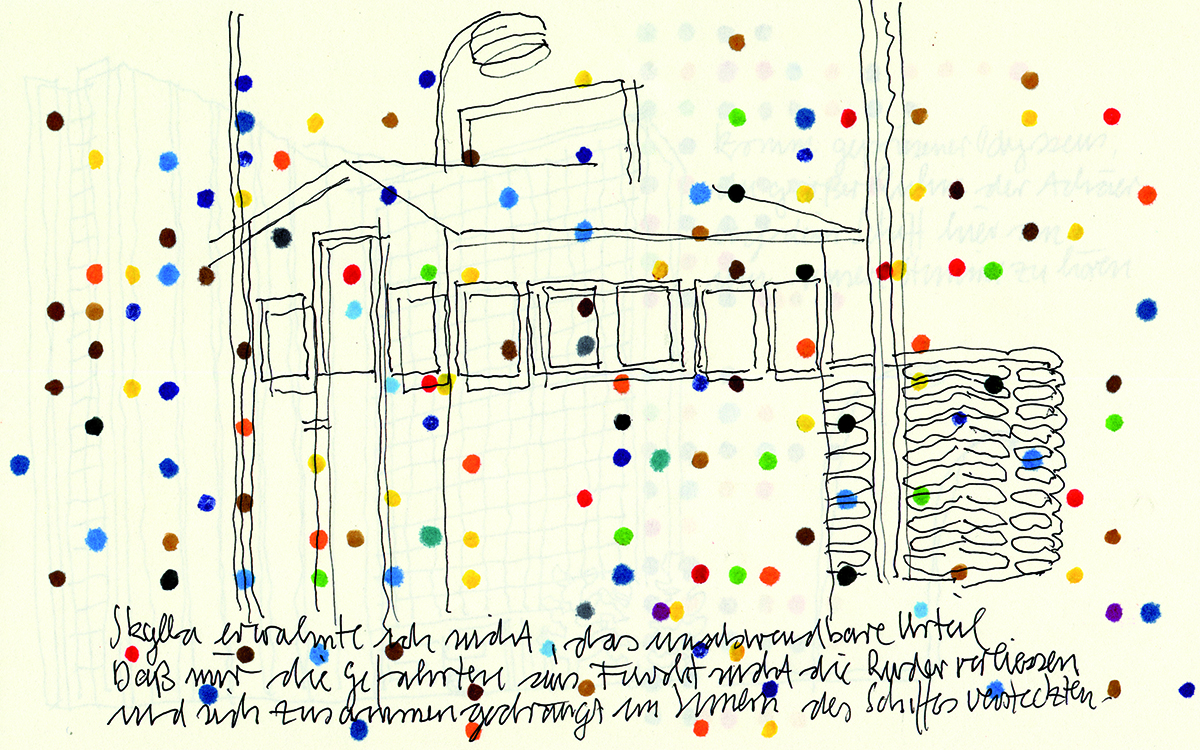 komm gepriesener Odysseus,
der Achaier
hier an
zu hören
Skylla erwähnte ich nicht, das unabwendbare Urteil.
Daß mir die Gefährten aus Furcht nicht die Ruder verliessen
und sich zusammengedrängt im Innern des Schiffes versteckten –